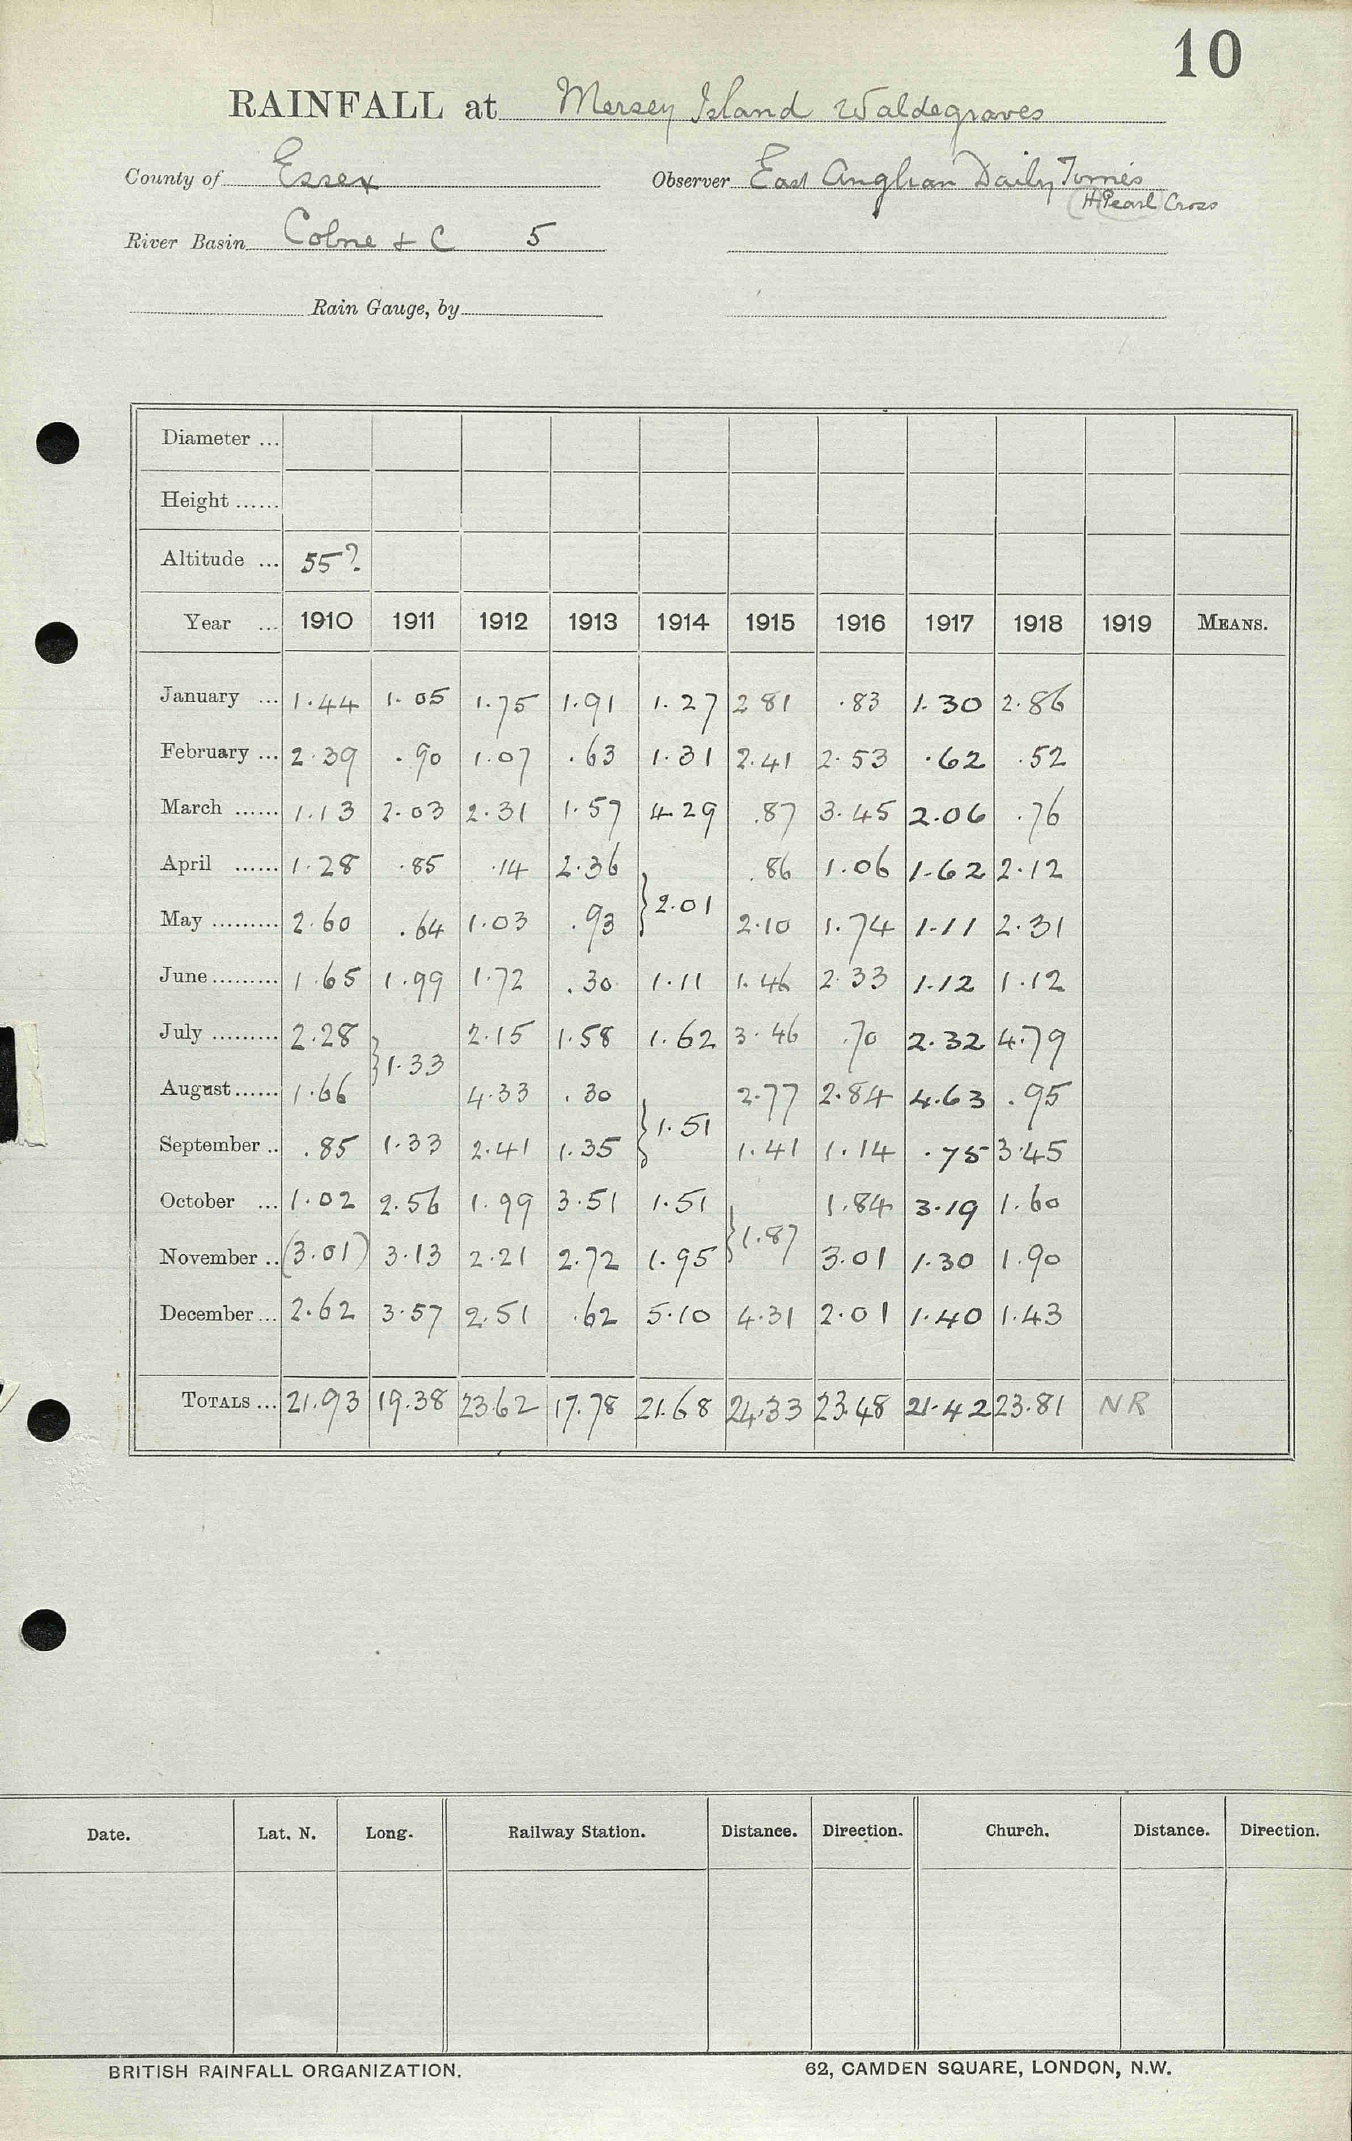 10
RAINFALL at Mersey Island Waldegraves
County of Essex Observer East Anglian Daily Times
(H Pearl Cross
River Basin Colne & C 5
Rain Gauge, by
Diameter ...
Height ......
Altitude ... 55?
Year ... 1910 1911 1912 1913 1914 1915 1916 1917 1918 1919 MEANS.
January ... 1.44 1.05 1.75 1.91 1.27 2 81 .83 1.30 2.86
February ... 2.39 .90 1.07 .63 1.31 2.41 2.53 .62 .52
March ...... 1.13 2.03 2.31 1.57 4.29 .87 3.45 2.06 .76
April ...... 1.28 .85 .14 2.36 .86 1.06 1.62 2.12
} 2.01
May ......... 2.60 .64 1.03 .93 2.10 1.74 1.11 2.31
June ......... 1.65 1.99 1.72 .30 1.11 1.46 2.33 1.12 1.12
July ......... 2.28 2.15 1.58 1.62 3.46 .70 2.32 4.79
} 1.33
August ...... 1.66 4.33 .30 2.77 2.84 4.63 .95
} 1.51
September .. .85 1.33 2.41 1.35 1.41 1.14 .75 3.45
October ... 1.02 2.56 1.99 3.51 1.51 1.84 3.19 1.60
} 1.87
November .. (3.01) 3.13 2.21 2.72 1.95 3.01 1.30 1.90
December ... 2.62 3.57 2.51 .62 5.10 4.31 2.01 1.40 1.43
TOTALS ... 21.93 19.38 23.62 17.78 21.68 24.33 23.48 21.42 23.81 NR
Date. Lat. N. Long. Railway Station. Distance. Direction. Church. Distance. Direction.
BRITISH RAINFALL ORGANIZATION. 62, CAMDEN SQUARE, LONDON, N.W.